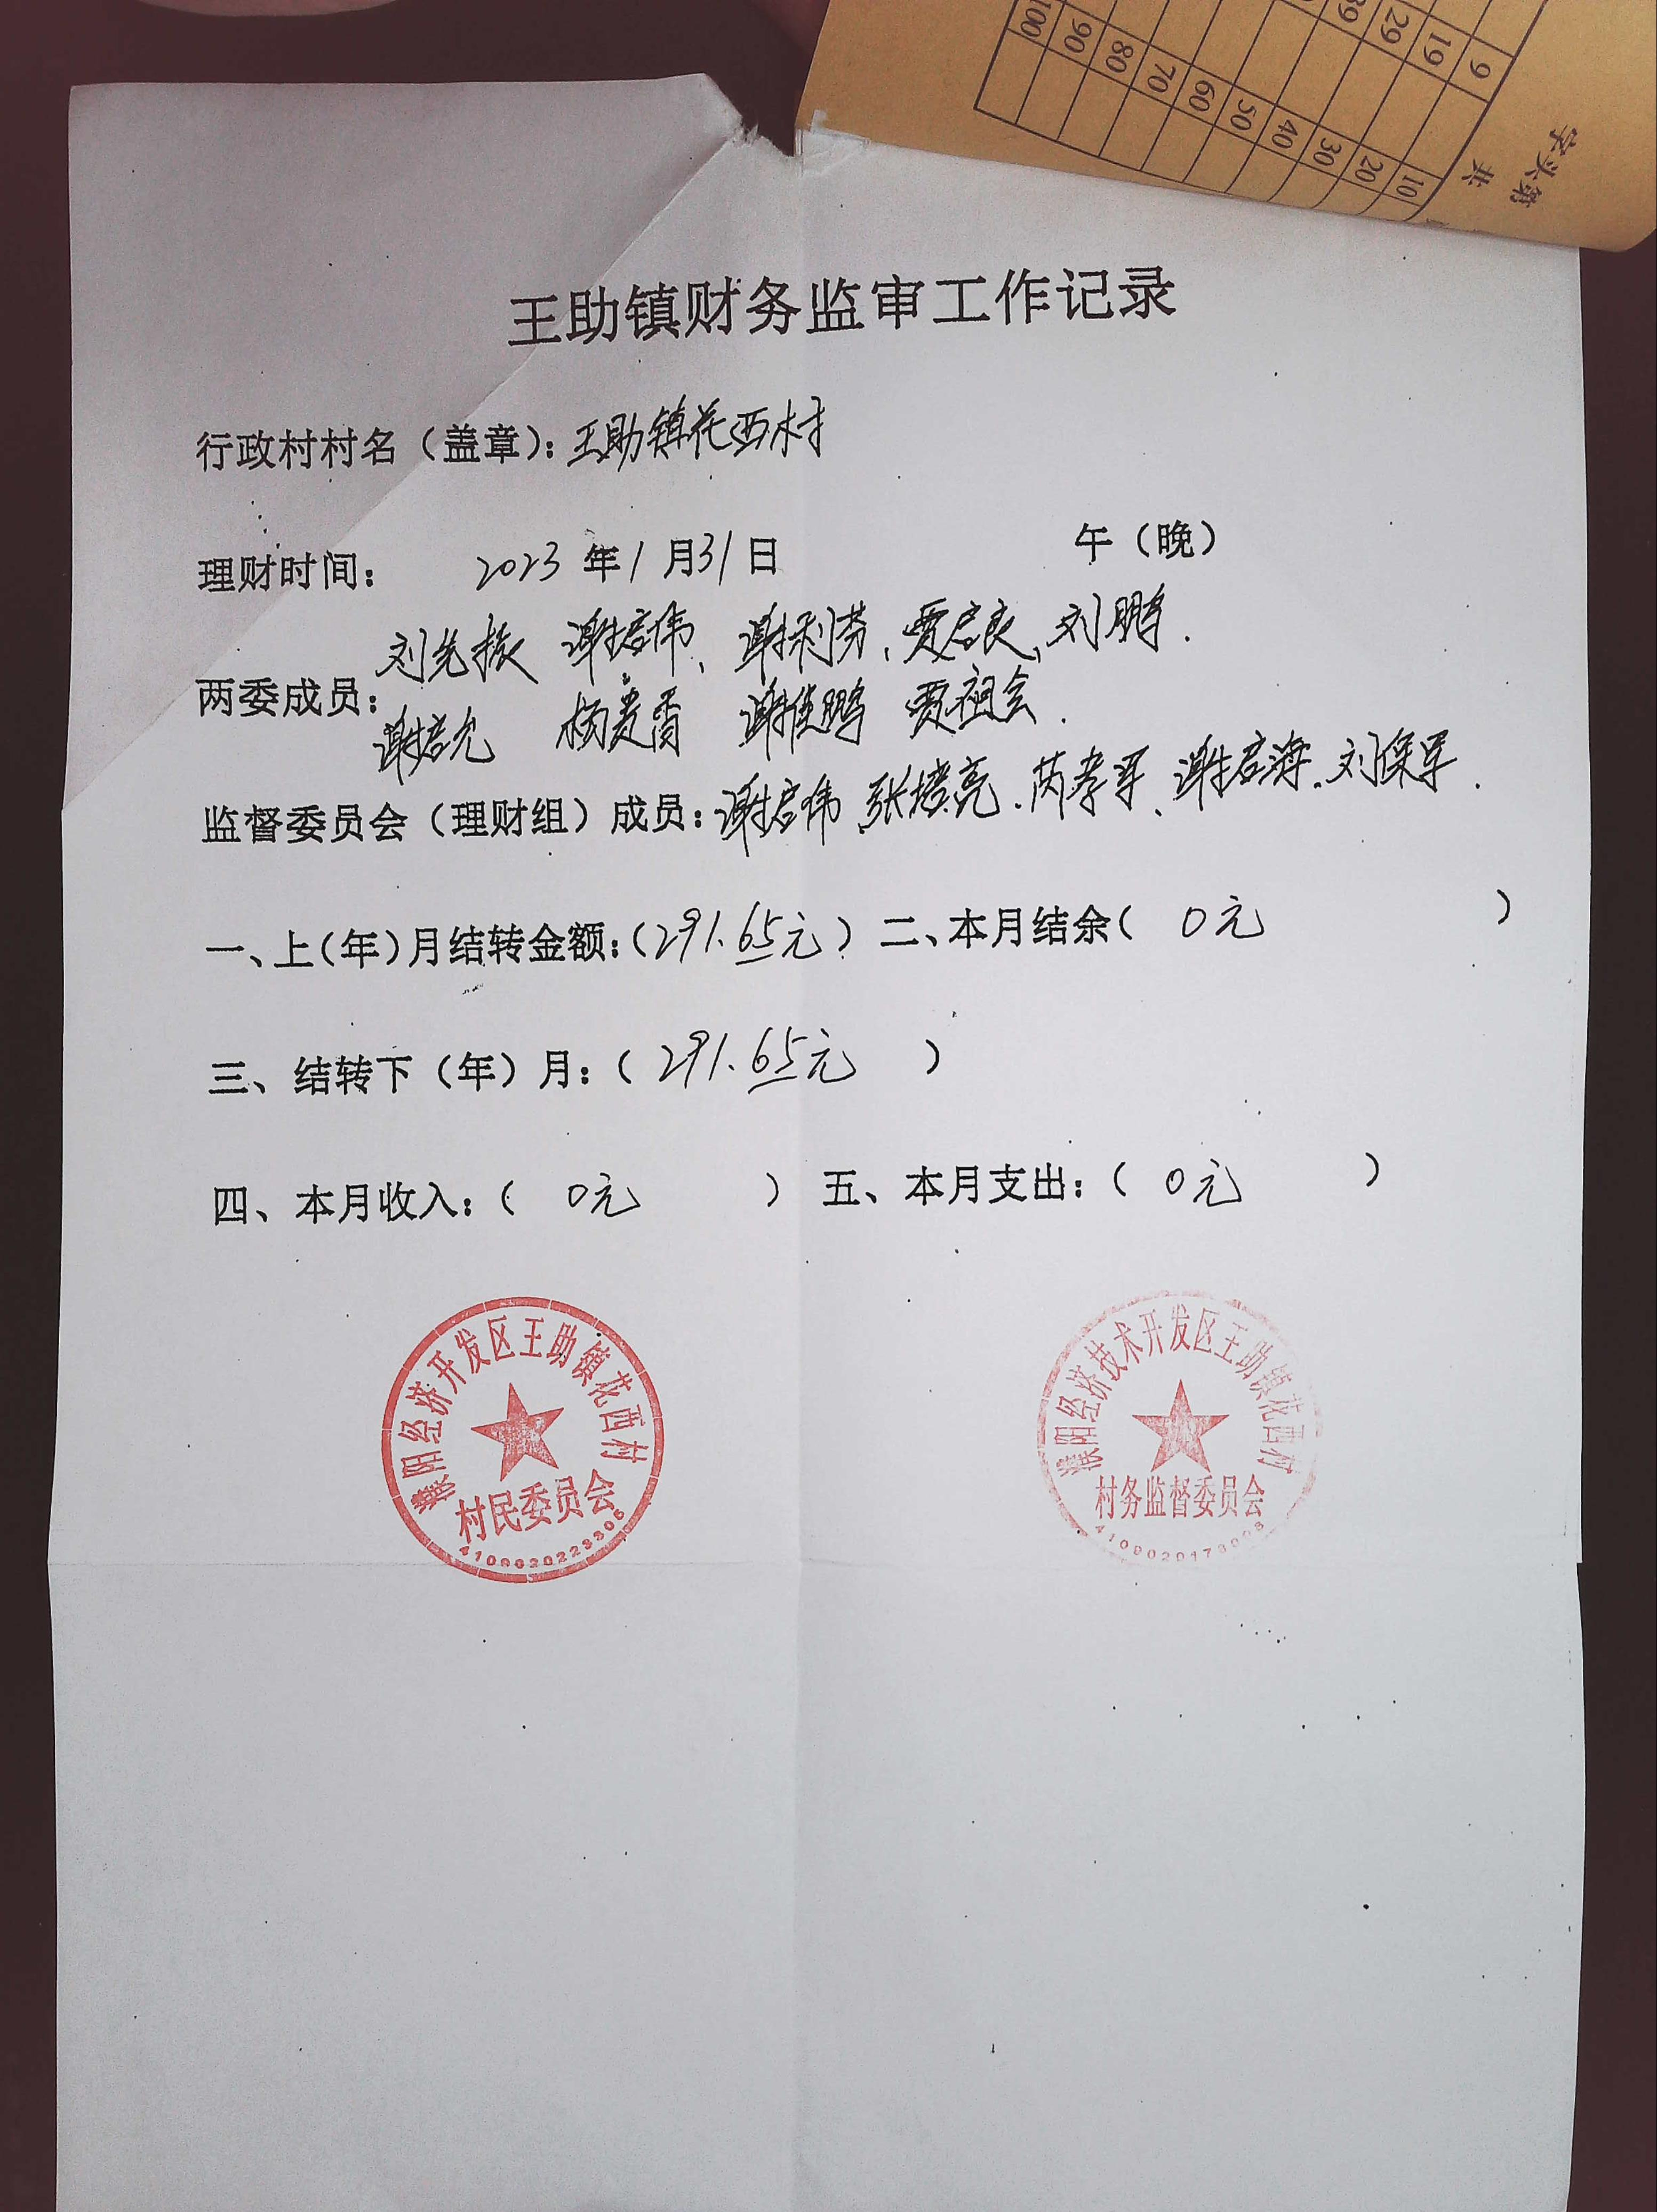 9
19
29
39
10
20
30
40
50
60
70
80
90
100
字头第
共
王助镇财务监审工作记录
行政村村名（盖章）：王助镇花西村
理财时间： 2023 年 1 月 31 日 午（晚）
刘先振 谢启伟、谢利芬、贾启良、刘鹏.
两委成员：
谢启允 杨贵香 谢佳鹏 贾祖会.
监督委员会（理财组）成员：谢启伟、张培亮、芮孝军、谢启海、刘保军.
一、上（年）月结转金额：（291.65元） 二、本月结余（ 0元 ）
三、结转下（年）月：（ 291.65元 ）
四、本月收入：（ 0元 ） 五、本月支出：（ 0元 ）
濮阳经济开发区王助镇花西村
村民委员会
濮阳经济技术开发区王助镇花西村
村务监督委员会